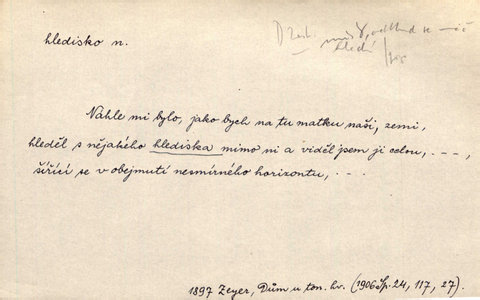 hledisko n.
místo, odkud se
hledí
Náhle mi bylo, jako bych na tu matku naši, zemi,
hleděl s nějakého hlediska mimo ni a viděl jsem ji celou, . – – ,
šířící se v objemutí nesmírného horizontu, . – .
1897 Zeyer, Dům u ton. hv. (1906 Sp. 24, 117, 27).